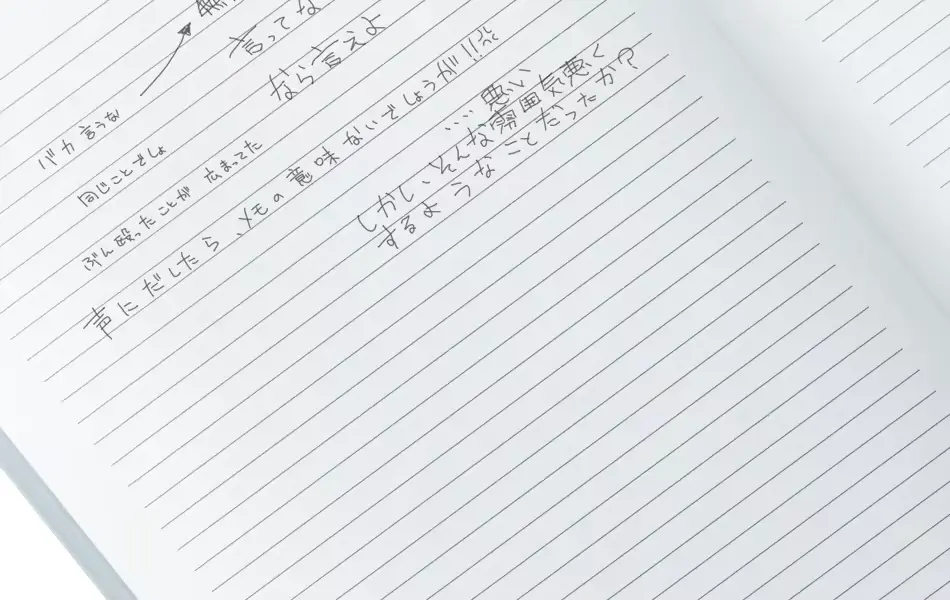 言ってな
なら言えよ
バカ言うな
同じことでしょ
ぶん殴ったことが 広まってた
声にだしたら、メモの意味ないでしょうが!!
....悪い
しかし、そんな雰囲気悪く
するようなことだったか?